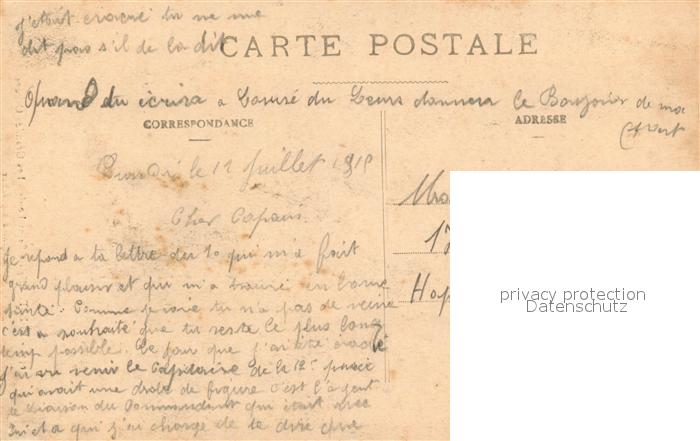 j'etait evacué tu ne me
dit pas s'il de la dit
CARTE POSTALE
Quand du ecrira a du Leurs donnera le Bonjour de ma
part
CORRESPONDANCE
ADRESSE
Lundi le 12 Juillet 1915
Cher Copain
Je repond a ta lettre du 10 qui m'a fait
grand plaisir et qui m'a trouvé en bonne
santé. Comme je voie tu n'a pas de veine
c'est a souhaité que tu reste le plus long
temp possible. Le jour que j'ai été evacué
j'ai vu venir le Capitaine de la 12e
qui avait une drole de figure c'est l'agent
de liaison du Commandant qui était avec
lui et a qui j'ai chargé de te dire que
17
Hop
privacy protection
Datenschutz